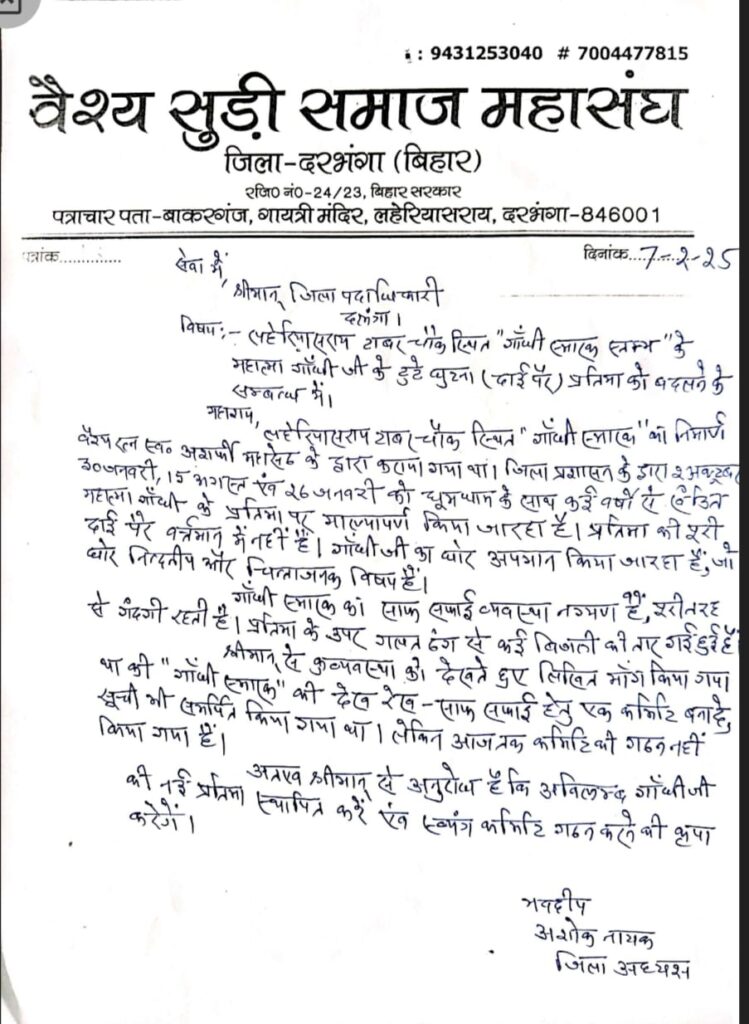 : 9431253040 # 7004477815
वैश्य सुड़ी समाज महासंघ
जिला-दरभंगा (बिहार)
रजि0 नं0-24/23, बिहार सरकार
पत्राचार पता-बाकरगंज, गायत्री मंदिर, लहेरियासराय, दरभंगा-846001
पत्रांक............ दिनांक....7-2-25
सेवा में,
श्रीमान् जिला पदाधिकारी
दरभंगा।
विषय:- लहेरियासराय टावर-चौक स्थित "गाँधी स्मारक स्तम्भ" के
महात्मा गाँधी जी के टुटे घुटना (दाई पैर) प्रतिमा को बदलने के
सम्बन्ध में।
महाशय,
लहेरियासराय टावर-चौक स्थित "गाँधी स्मारक" का निर्माण
वैश्य रत्न स्व० अशर्फी महासेठ के द्वारा कराया गया था। जिला प्रशासन के द्वारा 2 अक्टूबर
30 जनवरी, 15 अगस्त एंव 26 जनवरी को धूमधाम के साथ कई वर्षो से
महात्मा गाँधी के प्रतिमा पर माल्यापर्ण किया जा रहा है।
दाई पैर वर्त्तमान में नहीं है। गाँधी जी का घोर अपमान किया जा रहा है, जो
घोर निन्दनीय और चिन्ताजनक विषय है।
गाँधी स्मारक का साफ सफाई व्यवस्था नगण्य है, पूरी तरह
से गंदगी रहती है। प्रतिमा के उपर गलत ढंग से कई बिजली की तार गई हुई है
श्रीमान् से कुव्यवस्था को देखते हुए लिखित माँग किया गया
था की "गाँधी स्मारक" की देख रेख-साफ सफाई हेतु एक कमिटि बनादे,
सूची भी समर्पित किया गया था। लेकिन आजतक कमिटि की गठन नहीं
किया गया है।
अतएव श्रीमान् से अनुरोध है कि अविलम्ब गाँधी जी
की नई प्रतिमा स्थापित करें एंव कमिटि गठन करने की कृपा
करेगें।
भवदीय
अशोक नायक
जिला अध्यक्ष